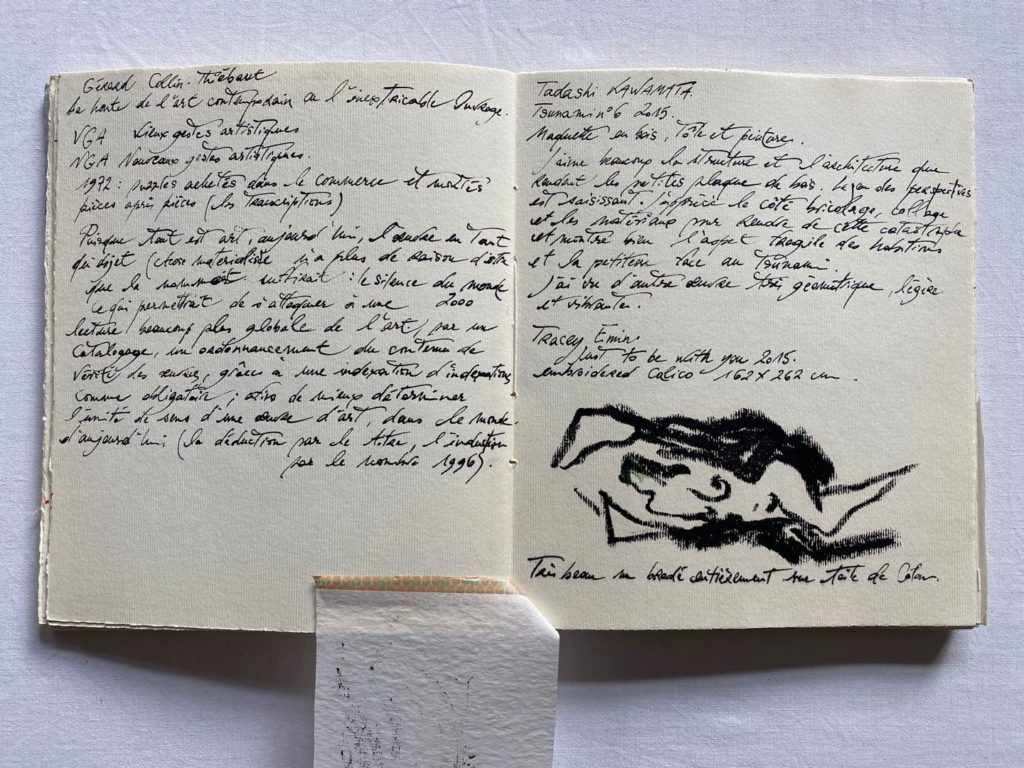 Gérard Collin-Thiébaut
La honte de l'art contemporain ou l'inextricable Ouvrage.
VGA Vieux gestes artistiques
NGA Nouveaux gestes artistiques.
1972 : puzzles achetés dans le commerce et montés
pièces après pièces (les transcriptions)
Puisque tout est art, aujourd'hui, l'œuvre en tant
qu'objet (chose matérialisée n'a plus de raison d'être
que la
: le silence du monde
ce qui permettrait de s'attaquer à une 2000
lecture beaucoup plus globale de l'art, par un
catalogage, un ordonnancement du contenu de
vérité des œuvres, grâce à une indexation d'indexations
comme obligatoire ; afin de mieux déterminer
l'unité de sens d'une œuvre d'art, dans le monde
d'aujourd'hui (la déduction par le titre, l'induction
par le nombre 1996).
Tadashi KAWAMATA
Tsunami n°6 2015.
Maquette en bois, tôle et peinture.
J'aime beaucoup la structure et l'architecture que
rendent les petites plaque de bois. Le jeu des perspectives
est saisissant. J'apprécie le côté bricolage, collage
et les matériaux pour rendre de cette catastrophe
et montre bien l'aspect fragile des habitions
et la petitesse face au Tsunami.
J'ai vu d'autre œuvre très géométrique, légère
et vibrantes.
Tracey Emin.
Just to be with you 2015.
embroidered calico 162 x 262 cm.
Très beau un brodé entièrement sur toile de Coton.